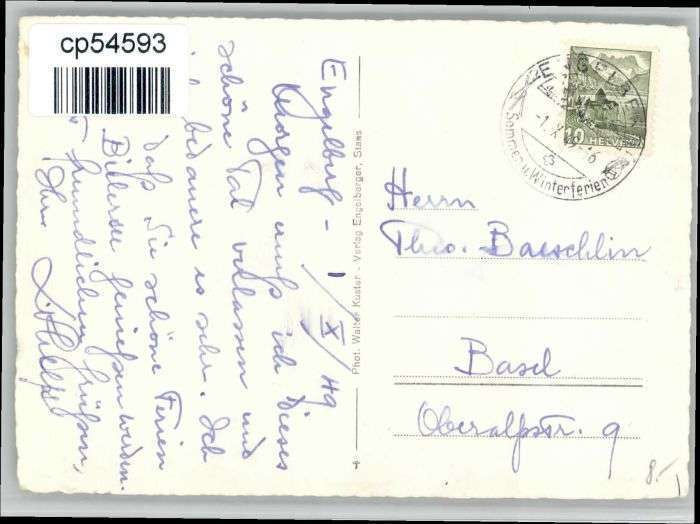 cp54593
Engelberg - 1/X/49
Morgen muß ich dieses
schöne Tal verlassen und
bedauere es sehr. Ich
daß Sie schöne Ferien
genießen werden.
freundlichen Grüßen,
Ihr
Phot. Walter Küster - Verlag Engelberger, Stans
ENGELBERG
-1.X
Sommer u. Winterferien
10
HELVETIA
Herrn
Theo. Baeschlin
Basel
Oberalpstr. 9
8.-